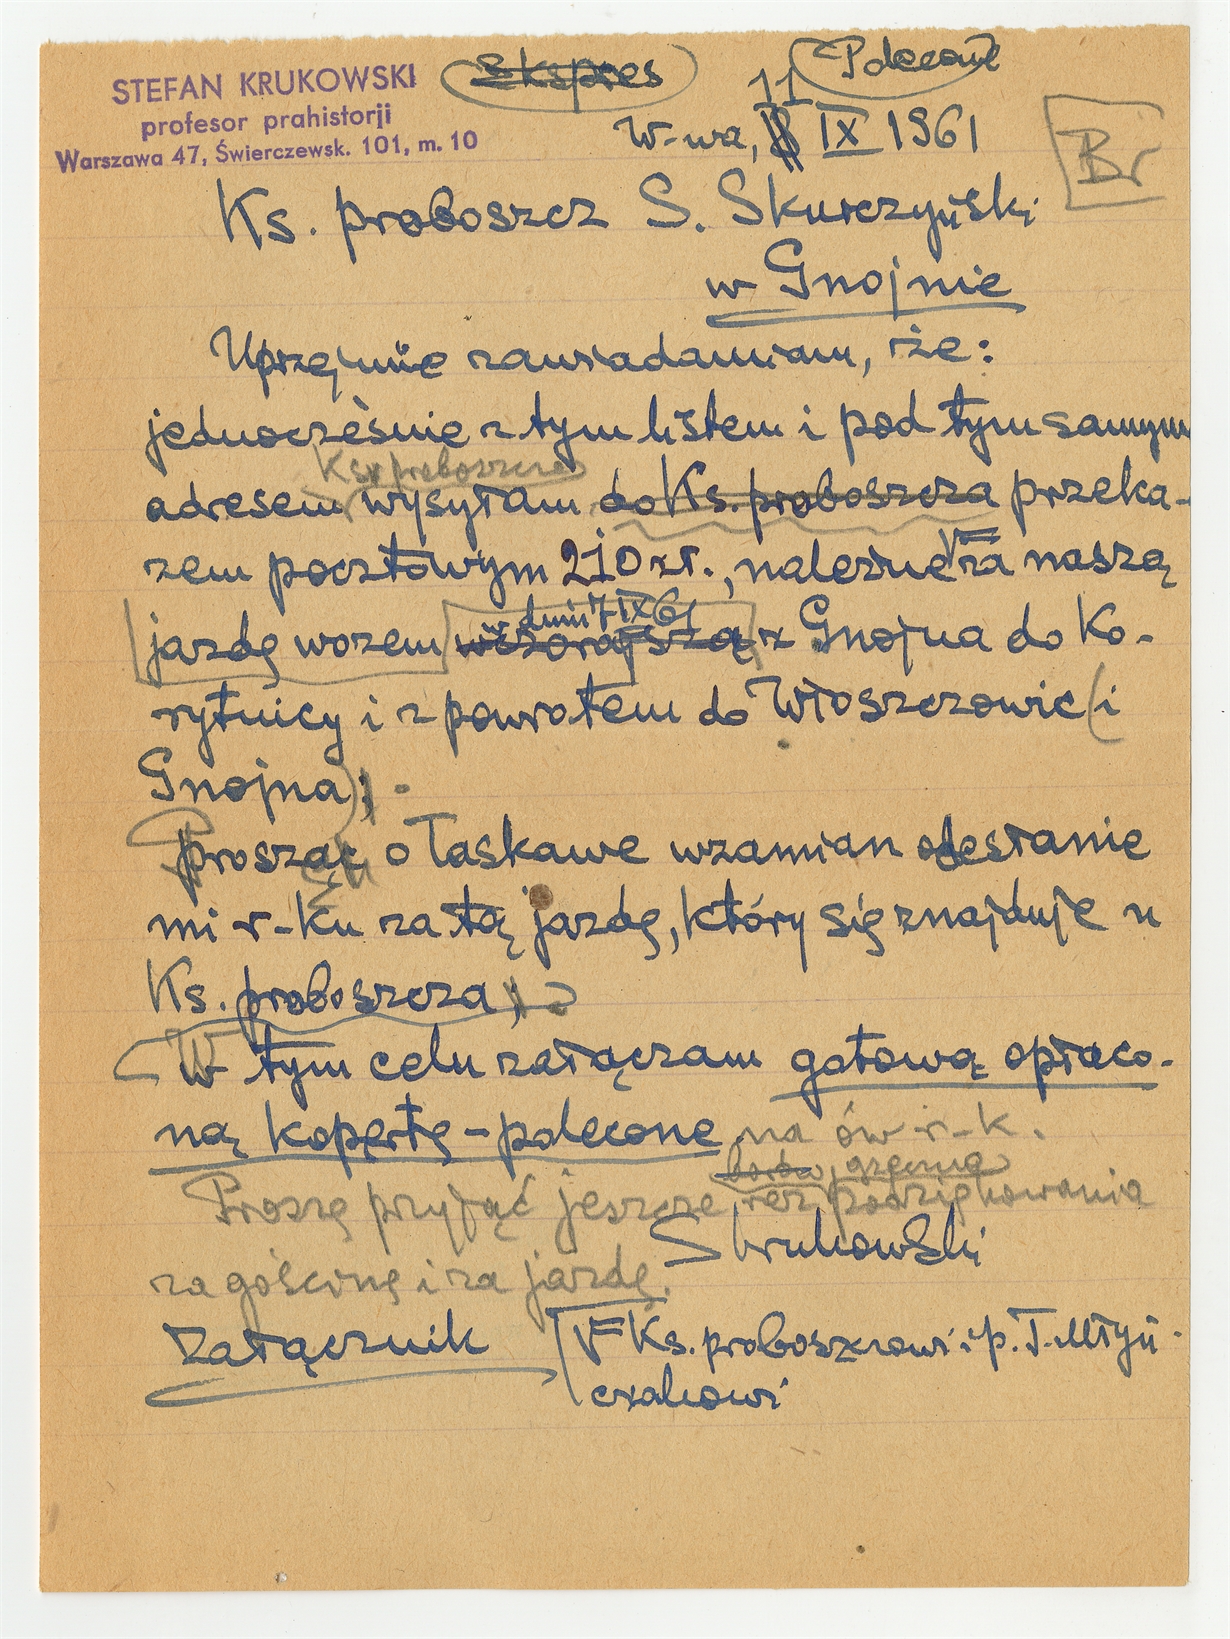 STEFAN KRUKOWSKI
profesor prahistorji
Warszawa 47, Świerczewsk. 101, m. 10
Ekspres
Polecone
11
W-wa, IX 1961
Br
Ks. proboszcz S. Skurczyński
w Gnojnie
Uprzejmie zawiadamiam, że:
jednocześnie z tym listem i pod tym samym
Ks. proboszcza
adresem wysyłam do Ks. proboszcza przeka-
zem pocztowym 210 zł., należne za naszą
w dniu 7 IX 61
jazdę wozem wczorajszą z Gnojna do Ko-
rytnicy i z powrotem do Włoszczowic (i
Gnojna).
Prosząc o łaskawe wzamian odesłanie
mi r-ku za tą jazdę, który się znajduje u
Ks. proboszcza;
W tym celu załączam gotową opłaco-
ną kopertę - polecone na ów r-k.
grzeczne
Proszę przyjąć jeszcze raz podziękowania
SKrukowski
za gościnę i za jazdę.
Załącznik
Ks. proboszczowi i p. T. Młyń-
czakowi